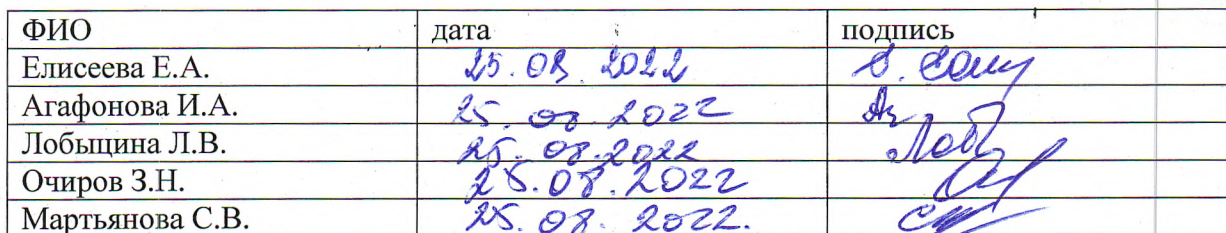 ФИО дата подпись
Елисеева Е.А. 25.08.2022
Агафонова И.А. 25.08.2022
Лобыцина Л.В. 25.08.2022 Лоб
Очиров З.Н. 25.08.2022
Мартьянова С.В. 25.08.2022.